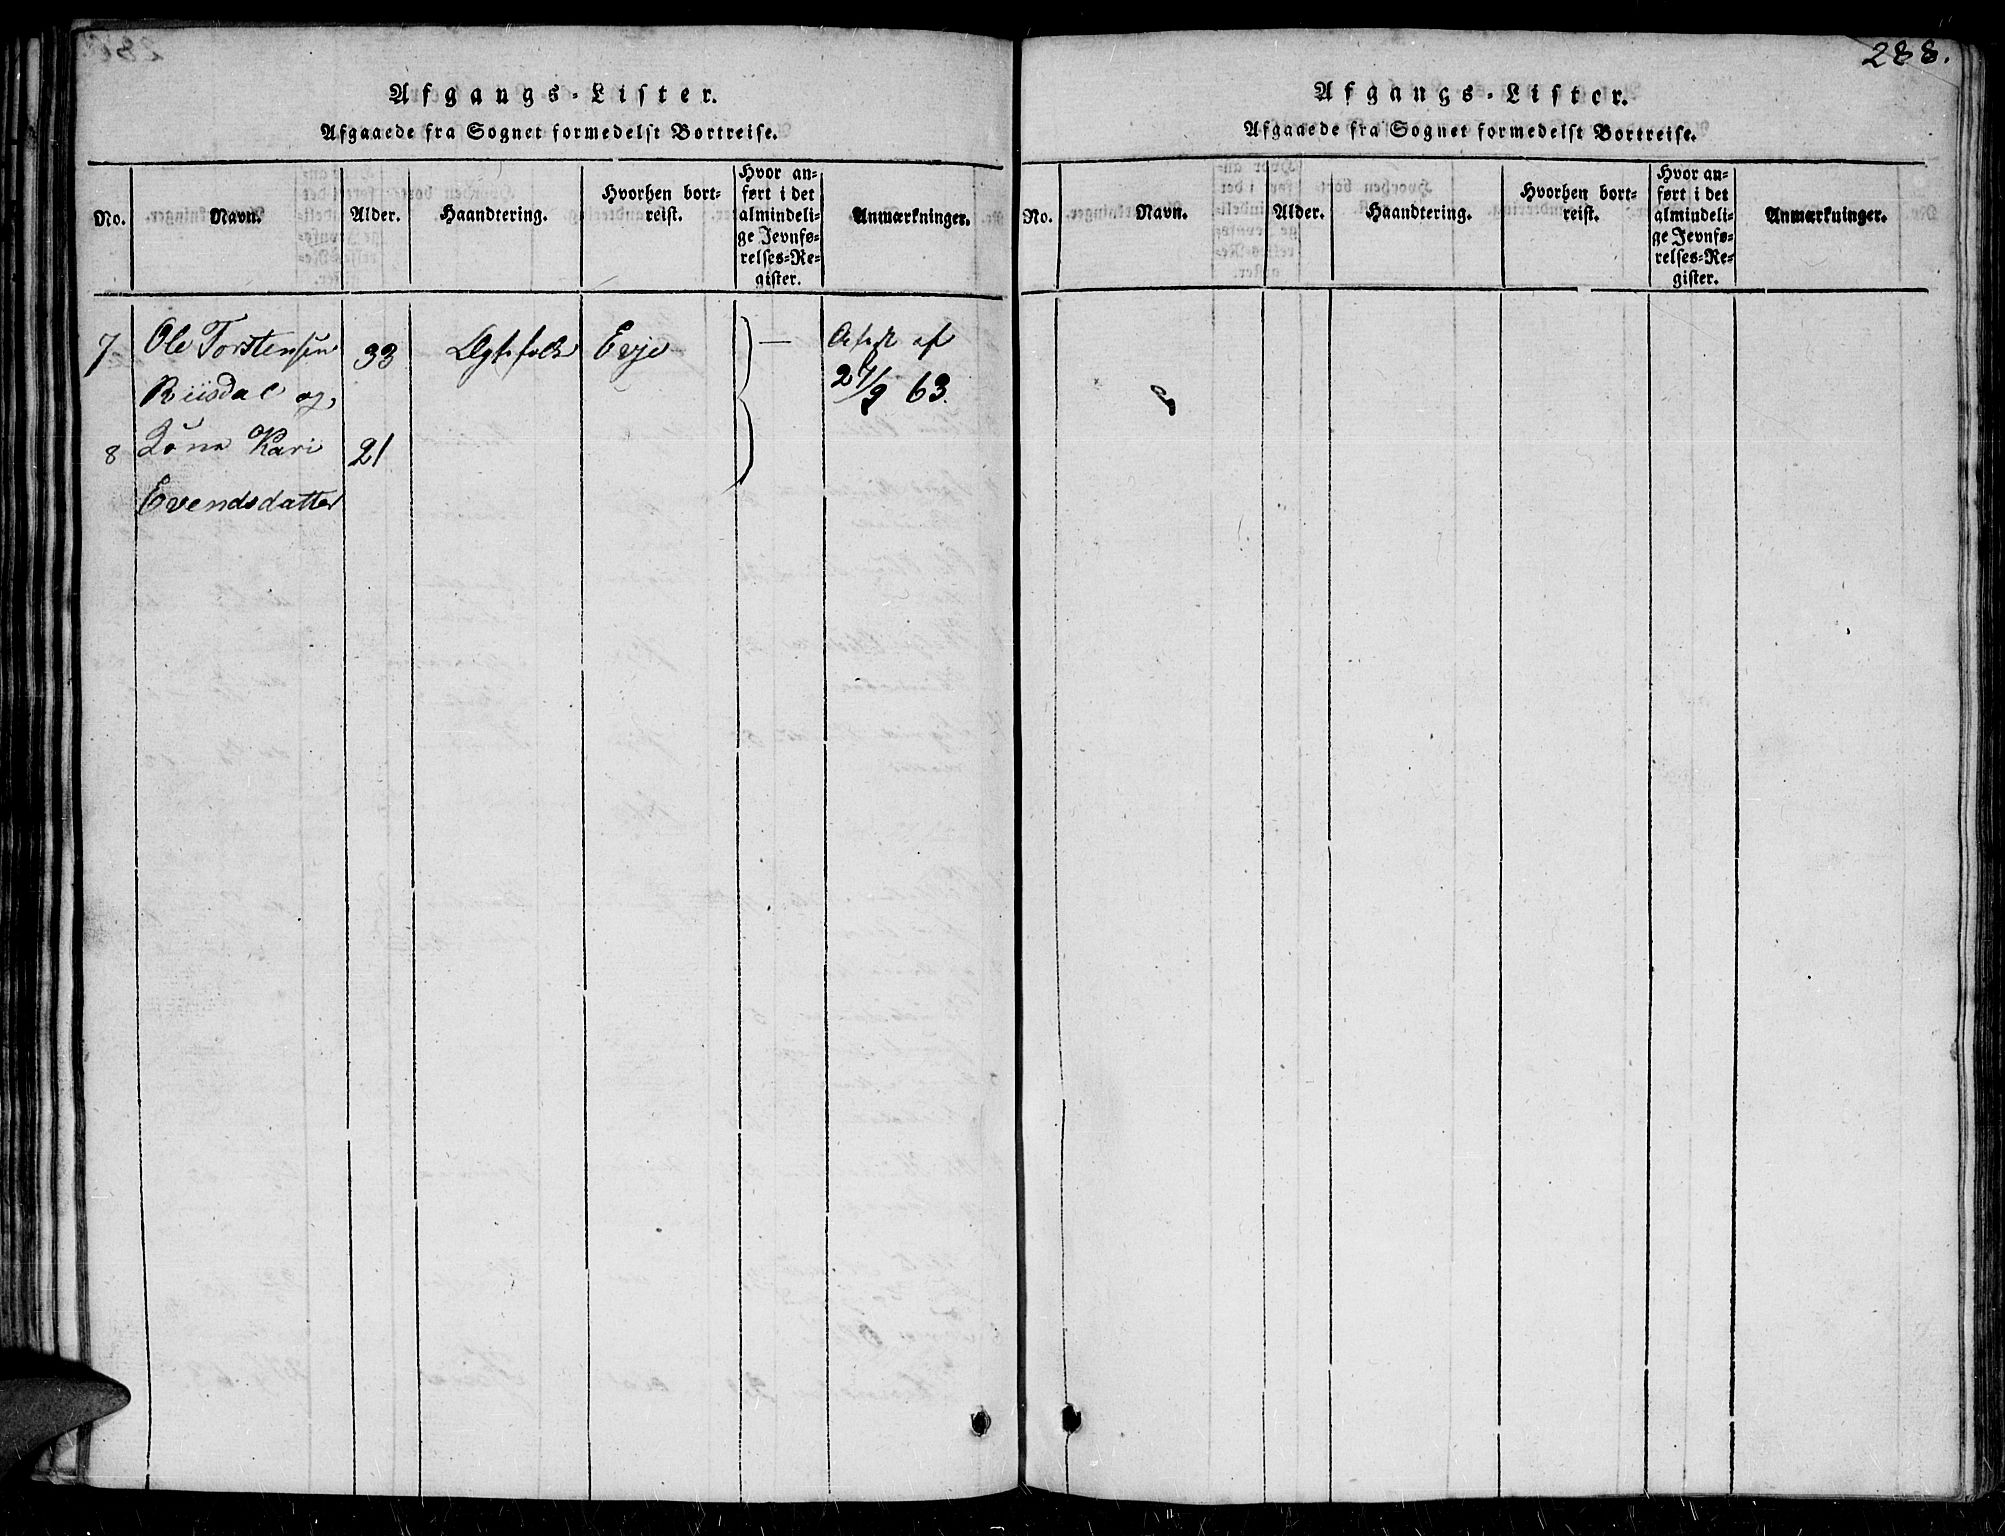 288.
Afgangs-Lister.
Afgaaede fra Sognet formedelst Bortreise.
No.
Navn.
Alder.
Haandtering.
Hvorhen bort-
reist.
Hvor an-
ført i det
almindeli-
ge Jevnfø-
relses-Re-
gister.
Anmærkninger.
7 Ole Torstensen 33 Ægtefolk Evje — Attest af
Riisdal og 27/9 63.
8 Kone Kari 21
Evendsdatter
Afgangs-Lister.
Afgaaede fra Sognet formedelst Bortreise.
No.
Navn.
Alder.
Haandtering.
Hvorhen bort-
reist.
Hvor an-
ført i det
almindeli-
ge Jevnfø-
relses-Re-
gister.
Anmærkninger.